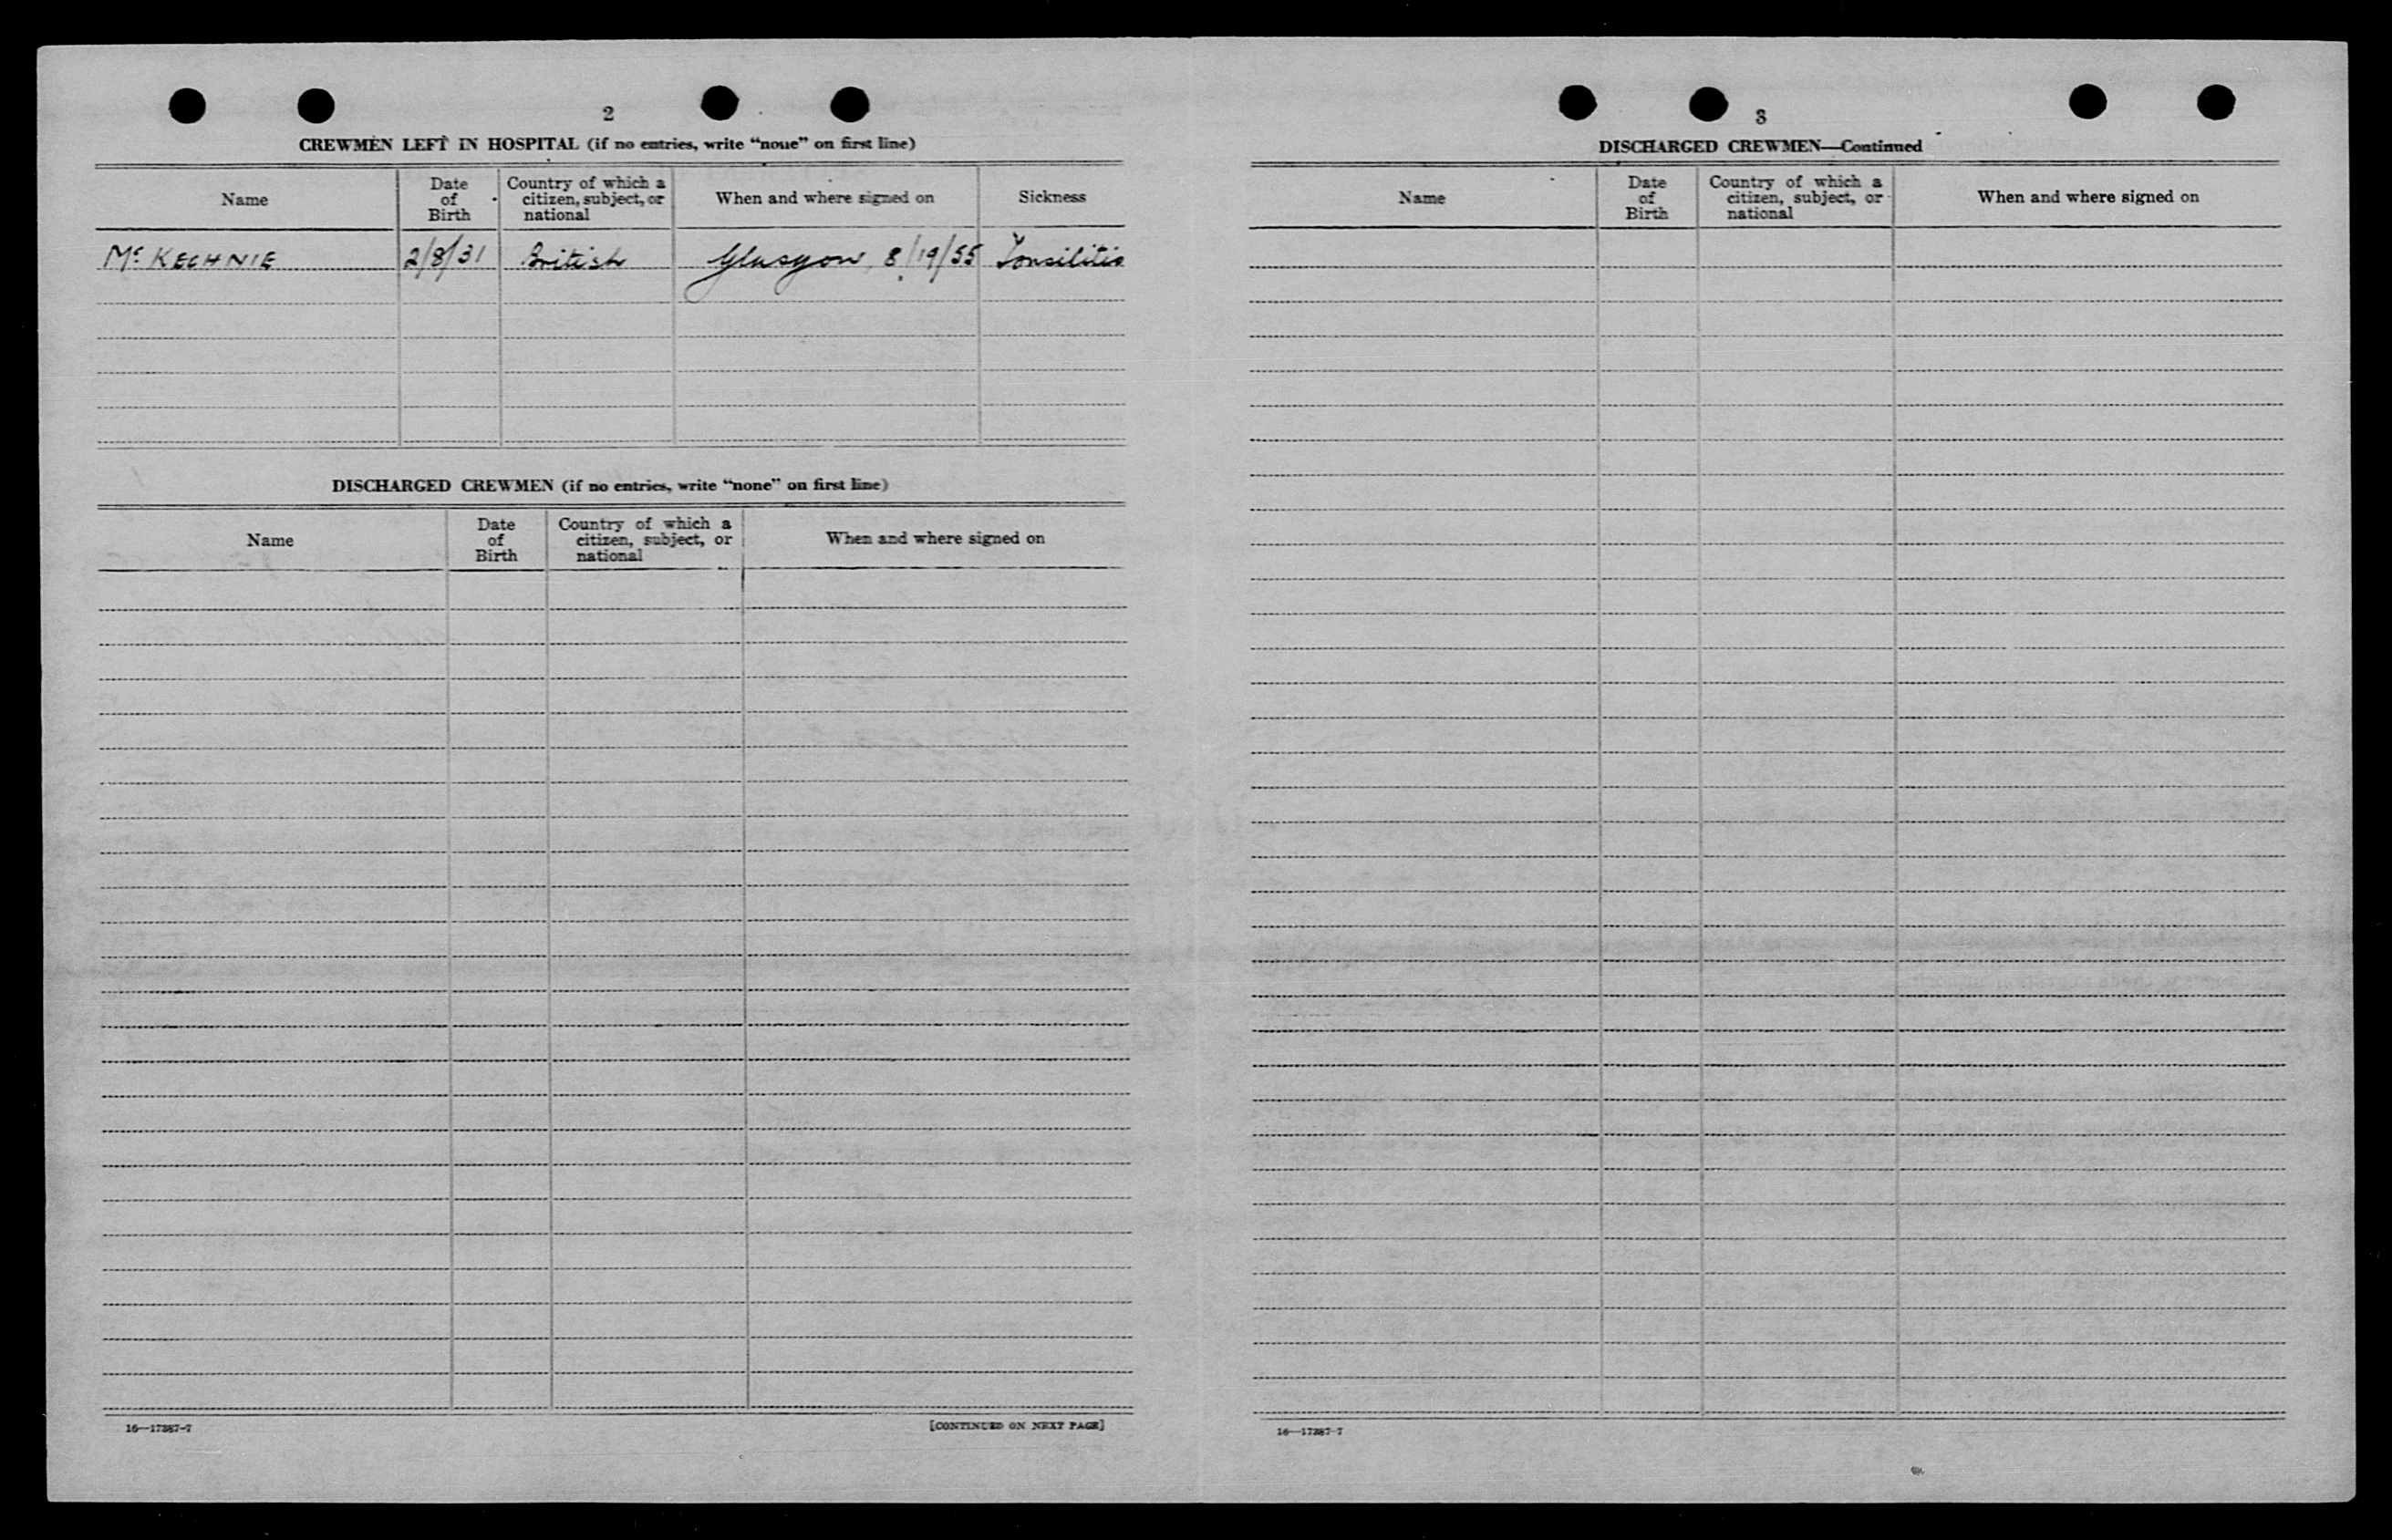 2
CREWMEN LEFT IN HOSPITAL (if no entries, write “none” on first line)
Name
Date of Birth
Country of which a citizen, subject, or national
When and where signed on
Sickness
Mc KECHNIE 2/8/31 British Glasgow, 8/19/55 Tonsilitis
DISCHARGED CREWMEN (if no entries, write “none” on first line)
Name
Date of Birth
Country of which a citizen, subject, or national
When and where signed on
16—17387-7
[CONTINUED ON NEXT PAGE]
3
DISCHARGED CREWMEN—Continued
Name
Date of Birth
Country of which a citizen, subject, or national
When and where signed on
16—17387-7